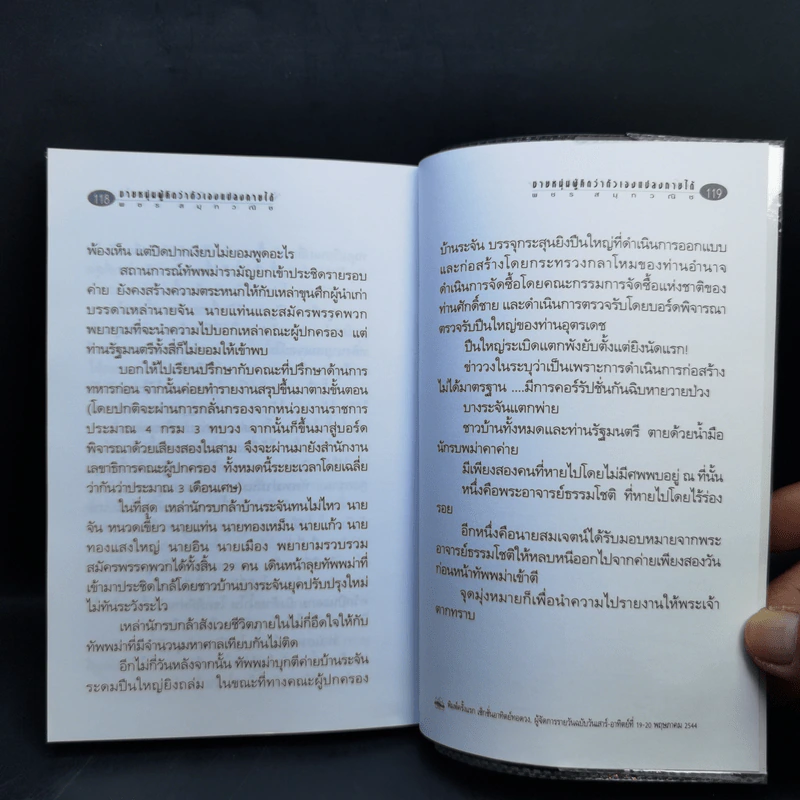 118
ชายหนุ่มผู้คิดว่าตัวเองแปลงกายได้
พ ช ร ส มุ ท ว ณิ ช
พ้องเห็น แต่ปิดปากเงียบไม่ยอมพูดอะไร
สถานการณ์ทัพพม่ารามัญยกเข้าประชิดรายรอบ
ค่าย ยังคงสร้างความตระหนกให้กับเหล่าขุนศึกผู้นำเก่า
บรรดาเหล่านายจัน นายแท่นและสมัครพรรคพวก
พยายามที่จะนำความไปบอกเหล่าคณะผู้ปกครอง แต่
ท่านรัฐมนตรีทั้งสี่ก็ไม่ยอมให้เข้าพบ
บอกให้ไปเรียนปรึกษากับคณะที่ปรึกษาด้านการ
ทหารก่อน จากนั้นค่อยทำรายงานสรุปขึ้นมาตามขั้นตอน
(โดยปกติจะผ่านการกลั่นกรองจากหน่วยงานราชการ
ประมาณ 4 กรม 3 ทบวง จากนั้นก็ขึ้นมาสู่บอร์ด
พิจารณาด้วยเสียงสองในสาม จึงจะผ่านมายังสำนักงาน
เลขาธิการคณะผู้ปกครอง ทั้งหมดนี้ระยะเวลาโดยเฉลี่ย
ว่ากันว่าประมาณ 3 เดือนเศษ)
ในที่สุด เหล่านักรบกล้าบ้านระจันทนไม่ไหว นาย
จัน หนวดเขี้ยว นายแท่น นายทองเหม็น นายแก้ว นาย
ทองแสงใหญ่ นายอิน นายเมือง พยายามรวบรวม
สมัครพรรคพวกได้ทั้งสิ้น 29 คน เดินหน้าลุยทัพพม่าที่
เข้ามาประชิดใกล้โดยชาวบ้านบางระจันยุคปรับปรุงใหม่
ไม่ทันระวังระไว
เหล่านักรบกล้าสังเวยชีวิตภายในไม่กี่อึดใจให้กับ
ทัพพม่าที่มีจำนวนมหาศาลเทียบกันไม่ติด
อีกไม่กี่วันหลังจากนั้น ทัพพม่าบุกตีค่ายบ้านระจัน
ระดมปืนใหญ่ยิงถล่ม ในขณะที่ทางคณะผู้ปกครอง
ชายหนุ่มผู้คิดว่าตัวเองแปลงกายได้
พ ช ร ส มุ ท ว ณิ ช
119
บ้านระจัน บรรจุกระสุนยิงปืนใหญ่ที่ดำเนินการออกแบบ
และก่อสร้างโดยกระทรวงกลาโหมของท่านอำนาจ
ดำเนินการจัดซื้อโดยคณะกรรมการจัดซื้อแห่งชาติของ
ท่านศักดิ์ชาย และดำเนินการตรวจรับโดยบอร์ดพิจารณา
ตรวจรับปืนใหญ่ของท่านอุตรเดช
ปืนใหญ่ระเบิดแตกพังยับตั้งแต่ยิงนัดแรก!
ข่าววงในระบุว่าเป็นเพราะการดำเนินการก่อสร้าง
ไม่ได้มาตรฐาน ....มีการคอร์รัปชั่นกันฉิบหายวายป่วง
บางระจันแตกพ่าย
ชาวบ้านทั้งหมดและท่านรัฐมนตรี ตายด้วยน้ำมือ
นักรบพม่าคาค่าย
มีเพียงสองคนที่หายไปโดยไม่มีศพพบอยู่ ณ ที่นั้น
หนึ่งคือพระอาจารย์ธรรมโชติ ที่หายไปโดยไร้ร่อง
รอย
อีกหนึ่งคือนายสมเจตน์ได้รับมอบหมายจากพระ
อาจารย์ธรรมโชติให้หลบหนีออกไปจากค่ายเพียงสองวัน
ก่อนหน้าทัพพม่าเข้าตี
จุดมุ่งหมายก็เพื่อนำความไปรายงานให้พระเจ้า
ตากทราบ
พิมพ์ครั้งแรก เซ็กชั่นอาทิตย์ทอดวง, ผู้จัดการรายวันฉบับวันเสาร์-อาทิตย์ที่ 19-20 พฤษภาคม 2544